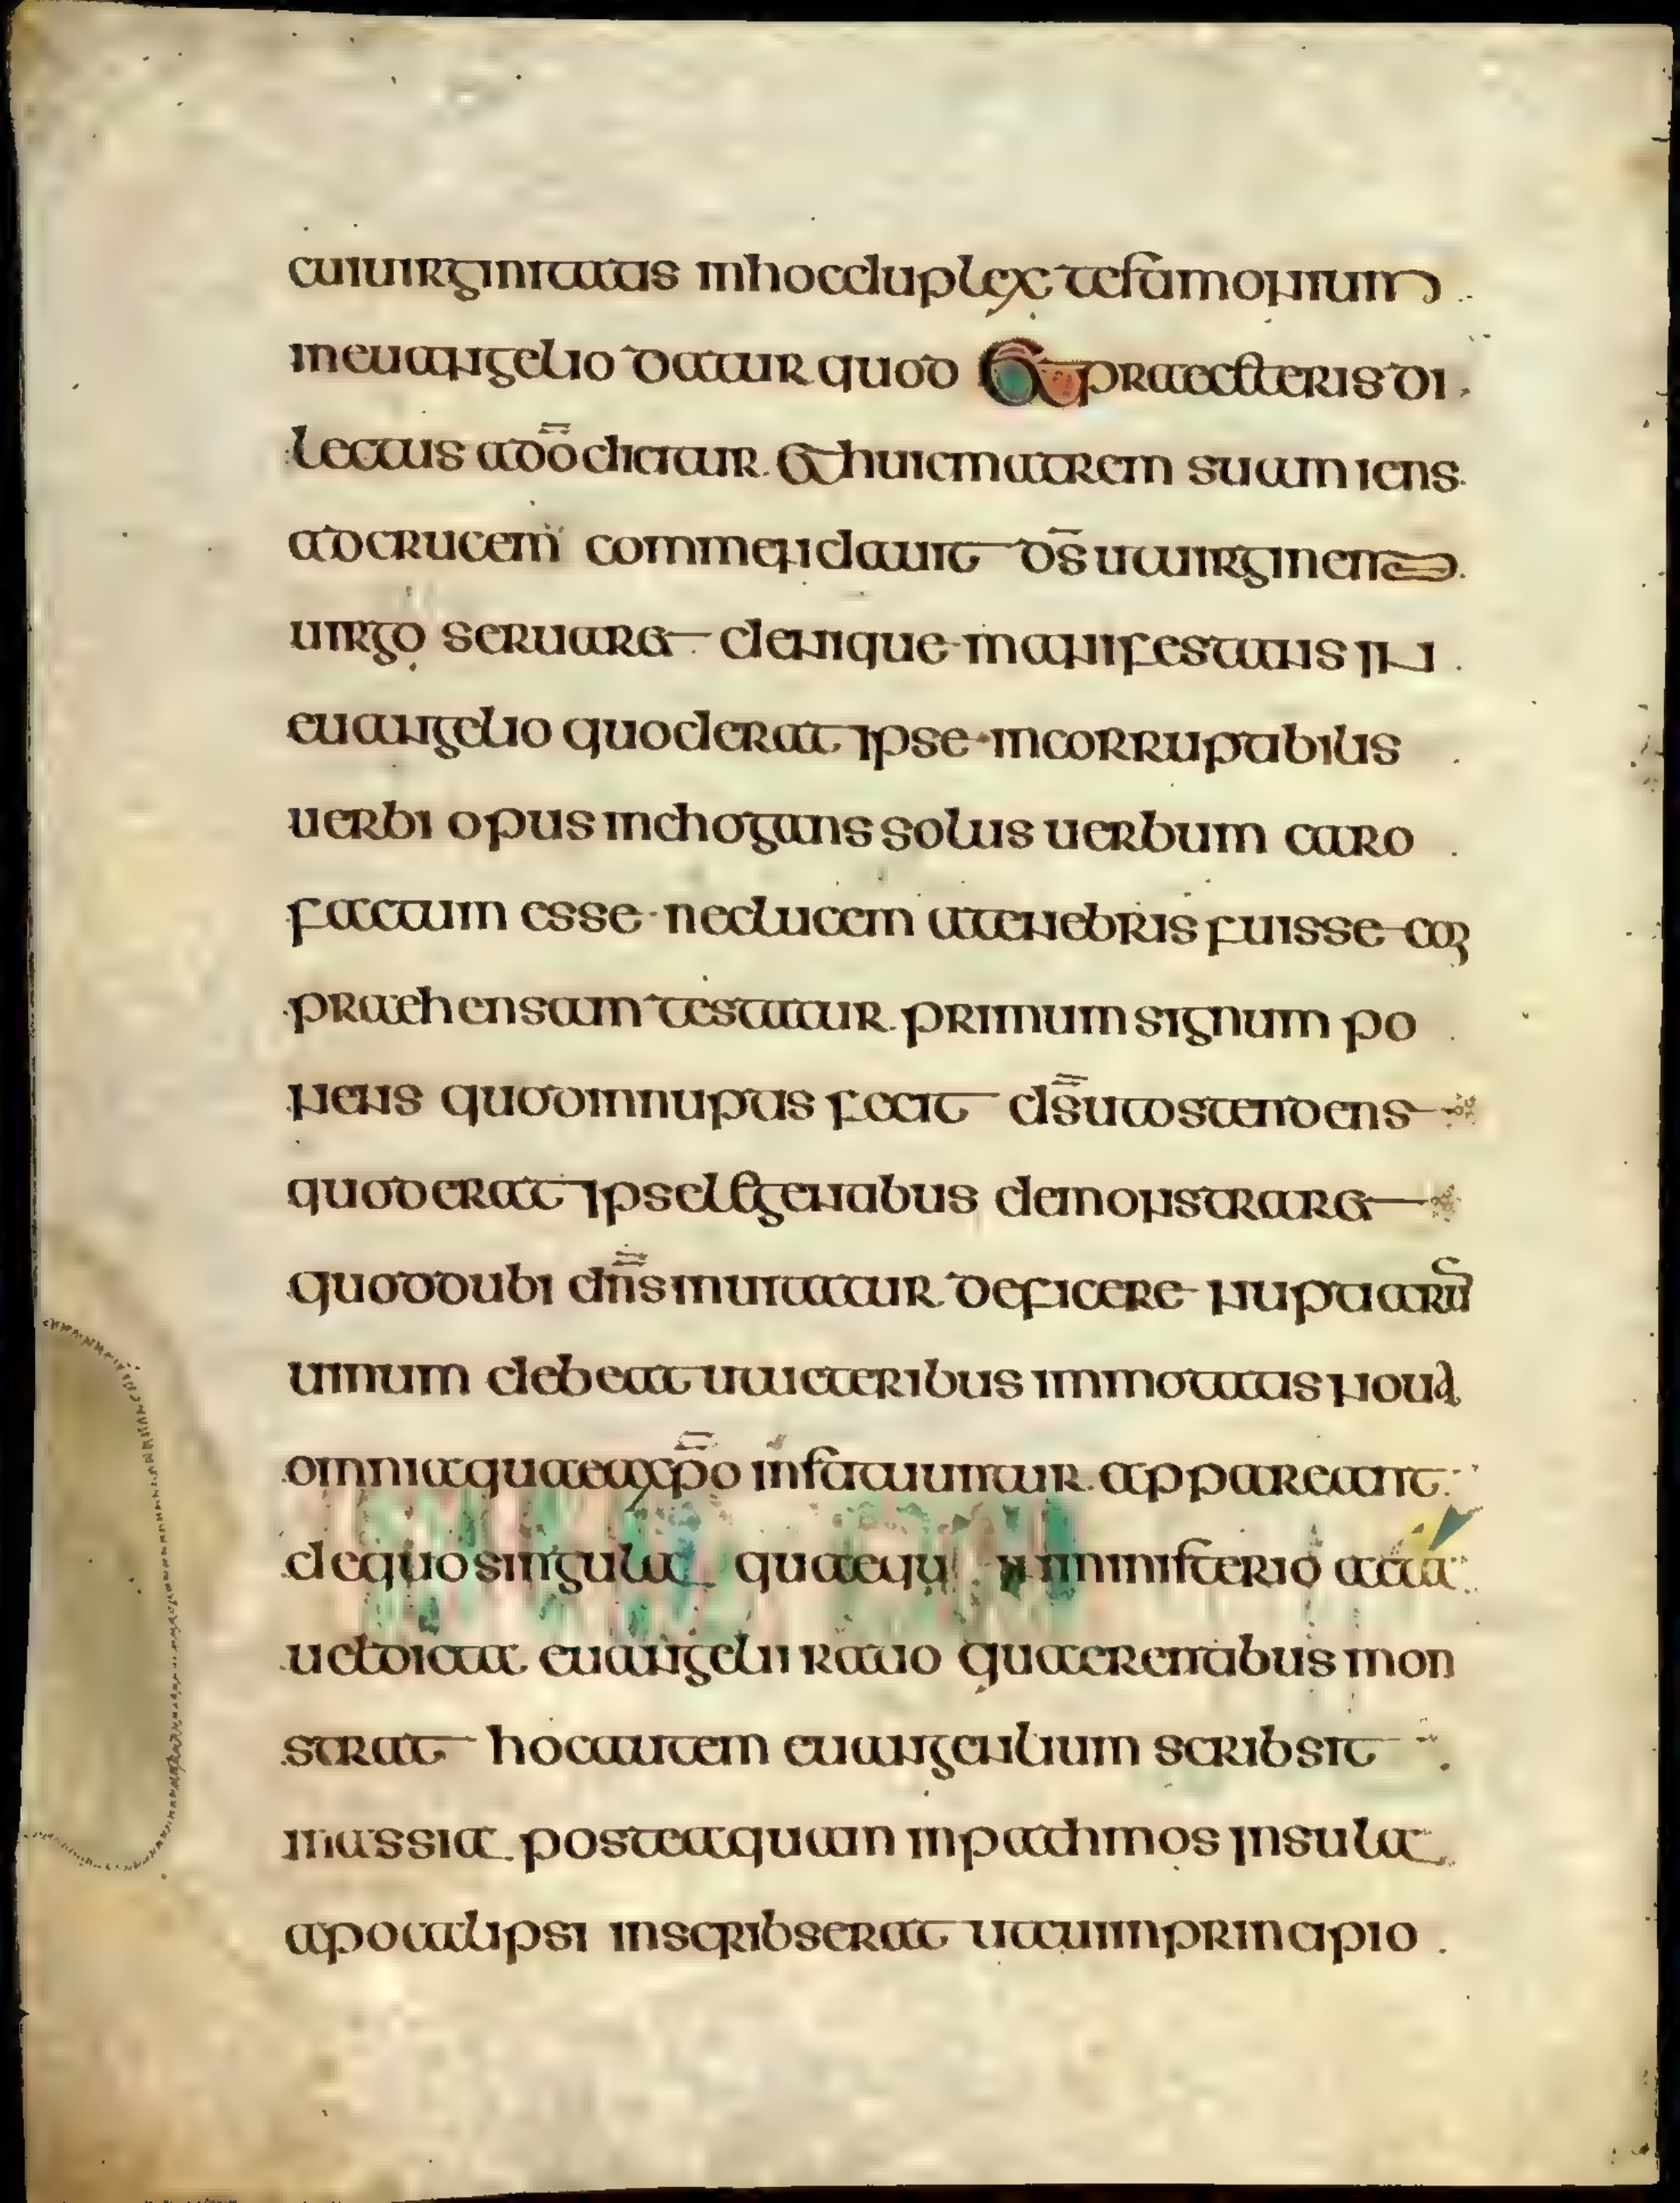 cuiuirginitatis inhocduplex testamonium
ineuangelio datur quod Et praeceteris di
lectus adō dicitur. Et huicmatrem suam iens
adcrucem commendauit d̄s utuirginem
uirgo seruaret denique manifestans in
euangelio quoderat ipse incorruptibilis
uerbi opus inchogans solus uerbum caro
factum esse neclucem atenebris fuisse com
praehensam testatur. primum signum po
nens quodinnuptis fecit d̄s utostendens
quoderat ipselegentibus demonstraret
quodubi dn̄s muitatur deficere nuptiarū
uinum debeat utueteribus immotatis noua
omniaquaeaxp̄o instatuuntur. appareant
dequosingula quaeque inministerio acta
ueldicta euangelii ratio quaerentibus mon
strat hocautem euangenlium scribsit
inassia. posteaquam inpathmos insula
apocalipsi inscribserat utcuiinprincipio